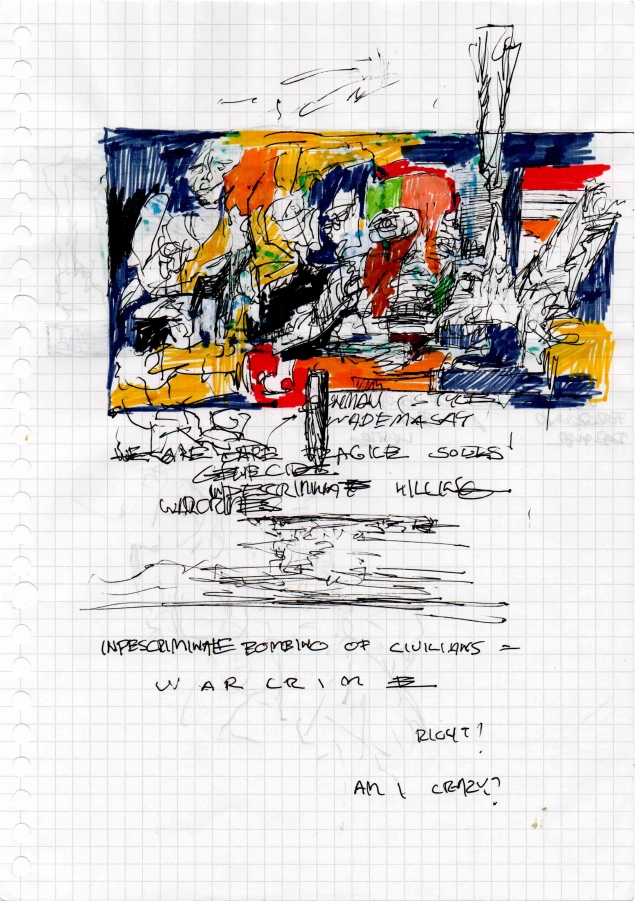 WE ARE ARE FRAGILE SOULS!
GENECIDE
INDESCRIMINATE KILLING
WARCRIMES
INDESCRIMINATE BOMBING OF CIVILIANS =
WARCRIME
RIGHT?
AM I CRAZY?